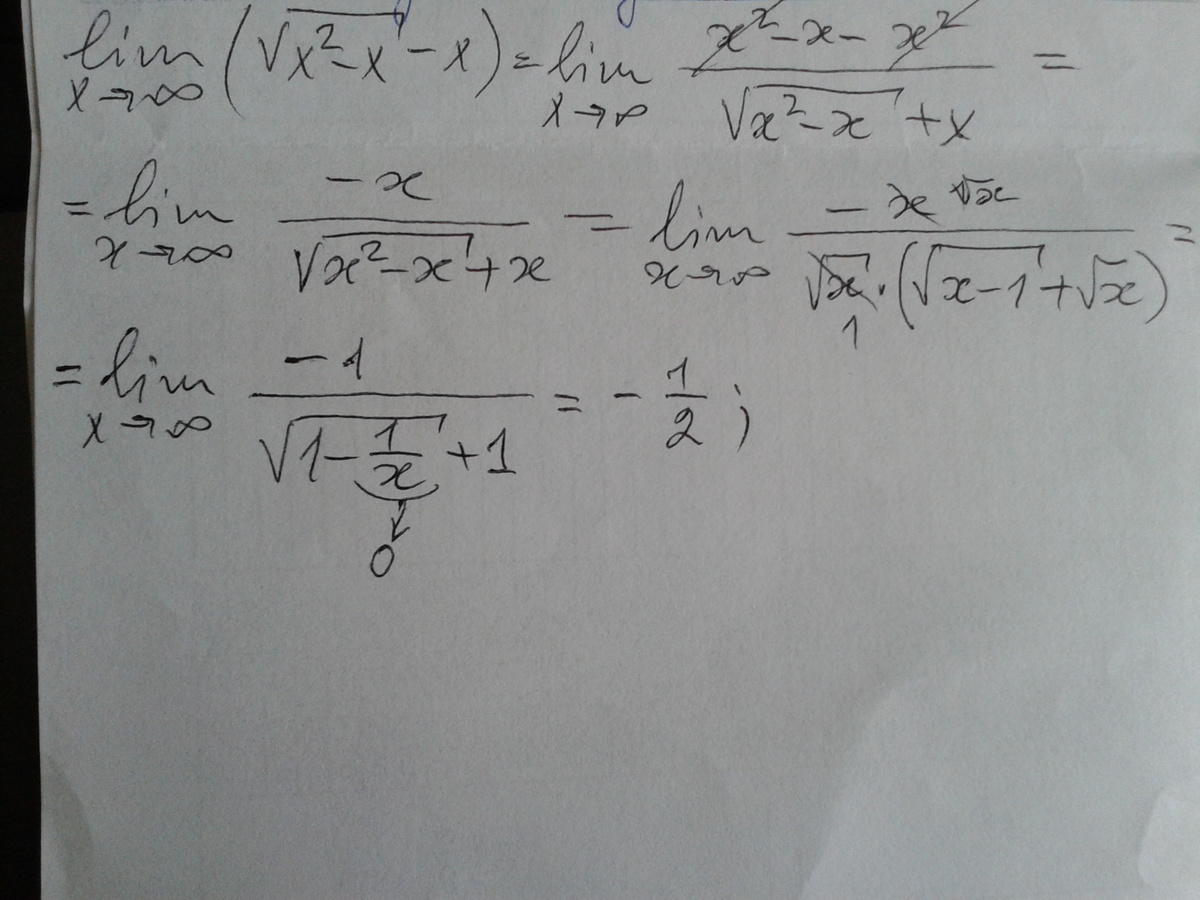 lim x→∞ (√(x²-x) - x) = lim x→∞ (x²-x-x²)/(√(x²-x) + x) =
= lim x→∞ (-x)/(√(x²-x) + x) = lim x→∞ (-x √x)/(√x · 1 (√(x-1) + √x)) =
= lim x→∞ (-1)/(√(1 - 1/x) + 1) = - 1/2 ;
0